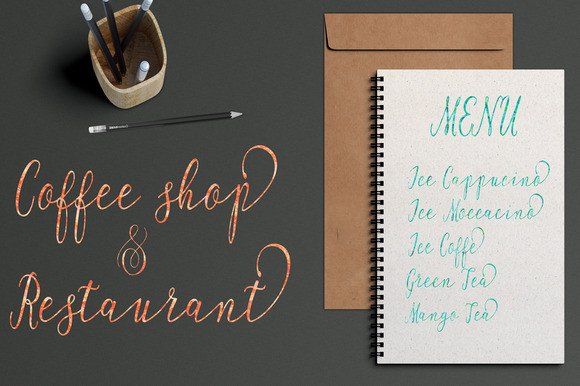 Coffee shop
&
Restaurant
MENU
Ice Cappucino
Ice Moccacino
Ice Coffe
Green Tea
Mango Tea